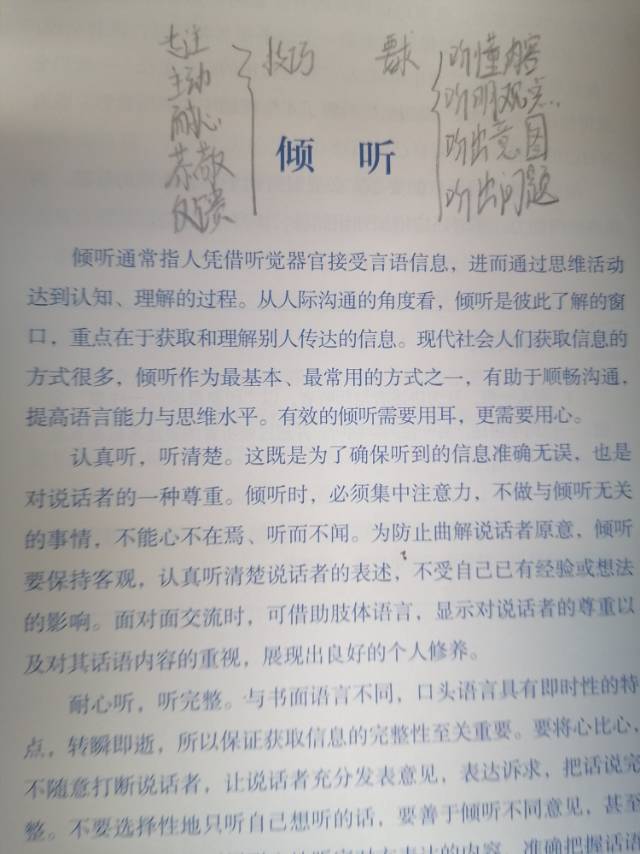 专注
主动
耐心
恭敬
反馈
技巧
要求
听懂内容
听明观点
听出意图
听出问题
倾 听
倾听通常指人凭借听觉器官接受言语信息，进而通过思维活动
达到认知、理解的过程。从人际沟通的角度看，倾听是彼此了解的窗
口，重点在于获取和理解别人传达的信息。现代社会人们获取信息的
方式很多，倾听作为最基本、最常用的方式之一，有助于顺畅沟通，
提高语言能力与思维水平。有效的倾听需要用耳，更需要用心。
认真听，听清楚。这既是为了确保听到的信息准确无误，也是
对说话者的一种尊重。倾听时，必须集中注意力，不做与倾听无关
的事情，不能心不在焉、听而不闻。为防止曲解说话者原意，倾听
要保持客观，认真听清楚说话者的表述，不受自己已有经验或想法
的影响。面对面交流时，可借助肢体语言，显示对说话者的尊重以
及对其话语内容的重视，展现出良好的个人修养。
耐心听，听完整。与书面语言不同，口头语言具有即时性的特
点，转瞬即逝，所以保证获取信息的完整性至关重要。要将心比心，
不随意打断说话者，让说话者充分发表意见，表达诉求，把话说完
整。不要选择性地只听自己想听的话，要善于倾听不同意见，甚至
对方表达的内容，准确把握话语